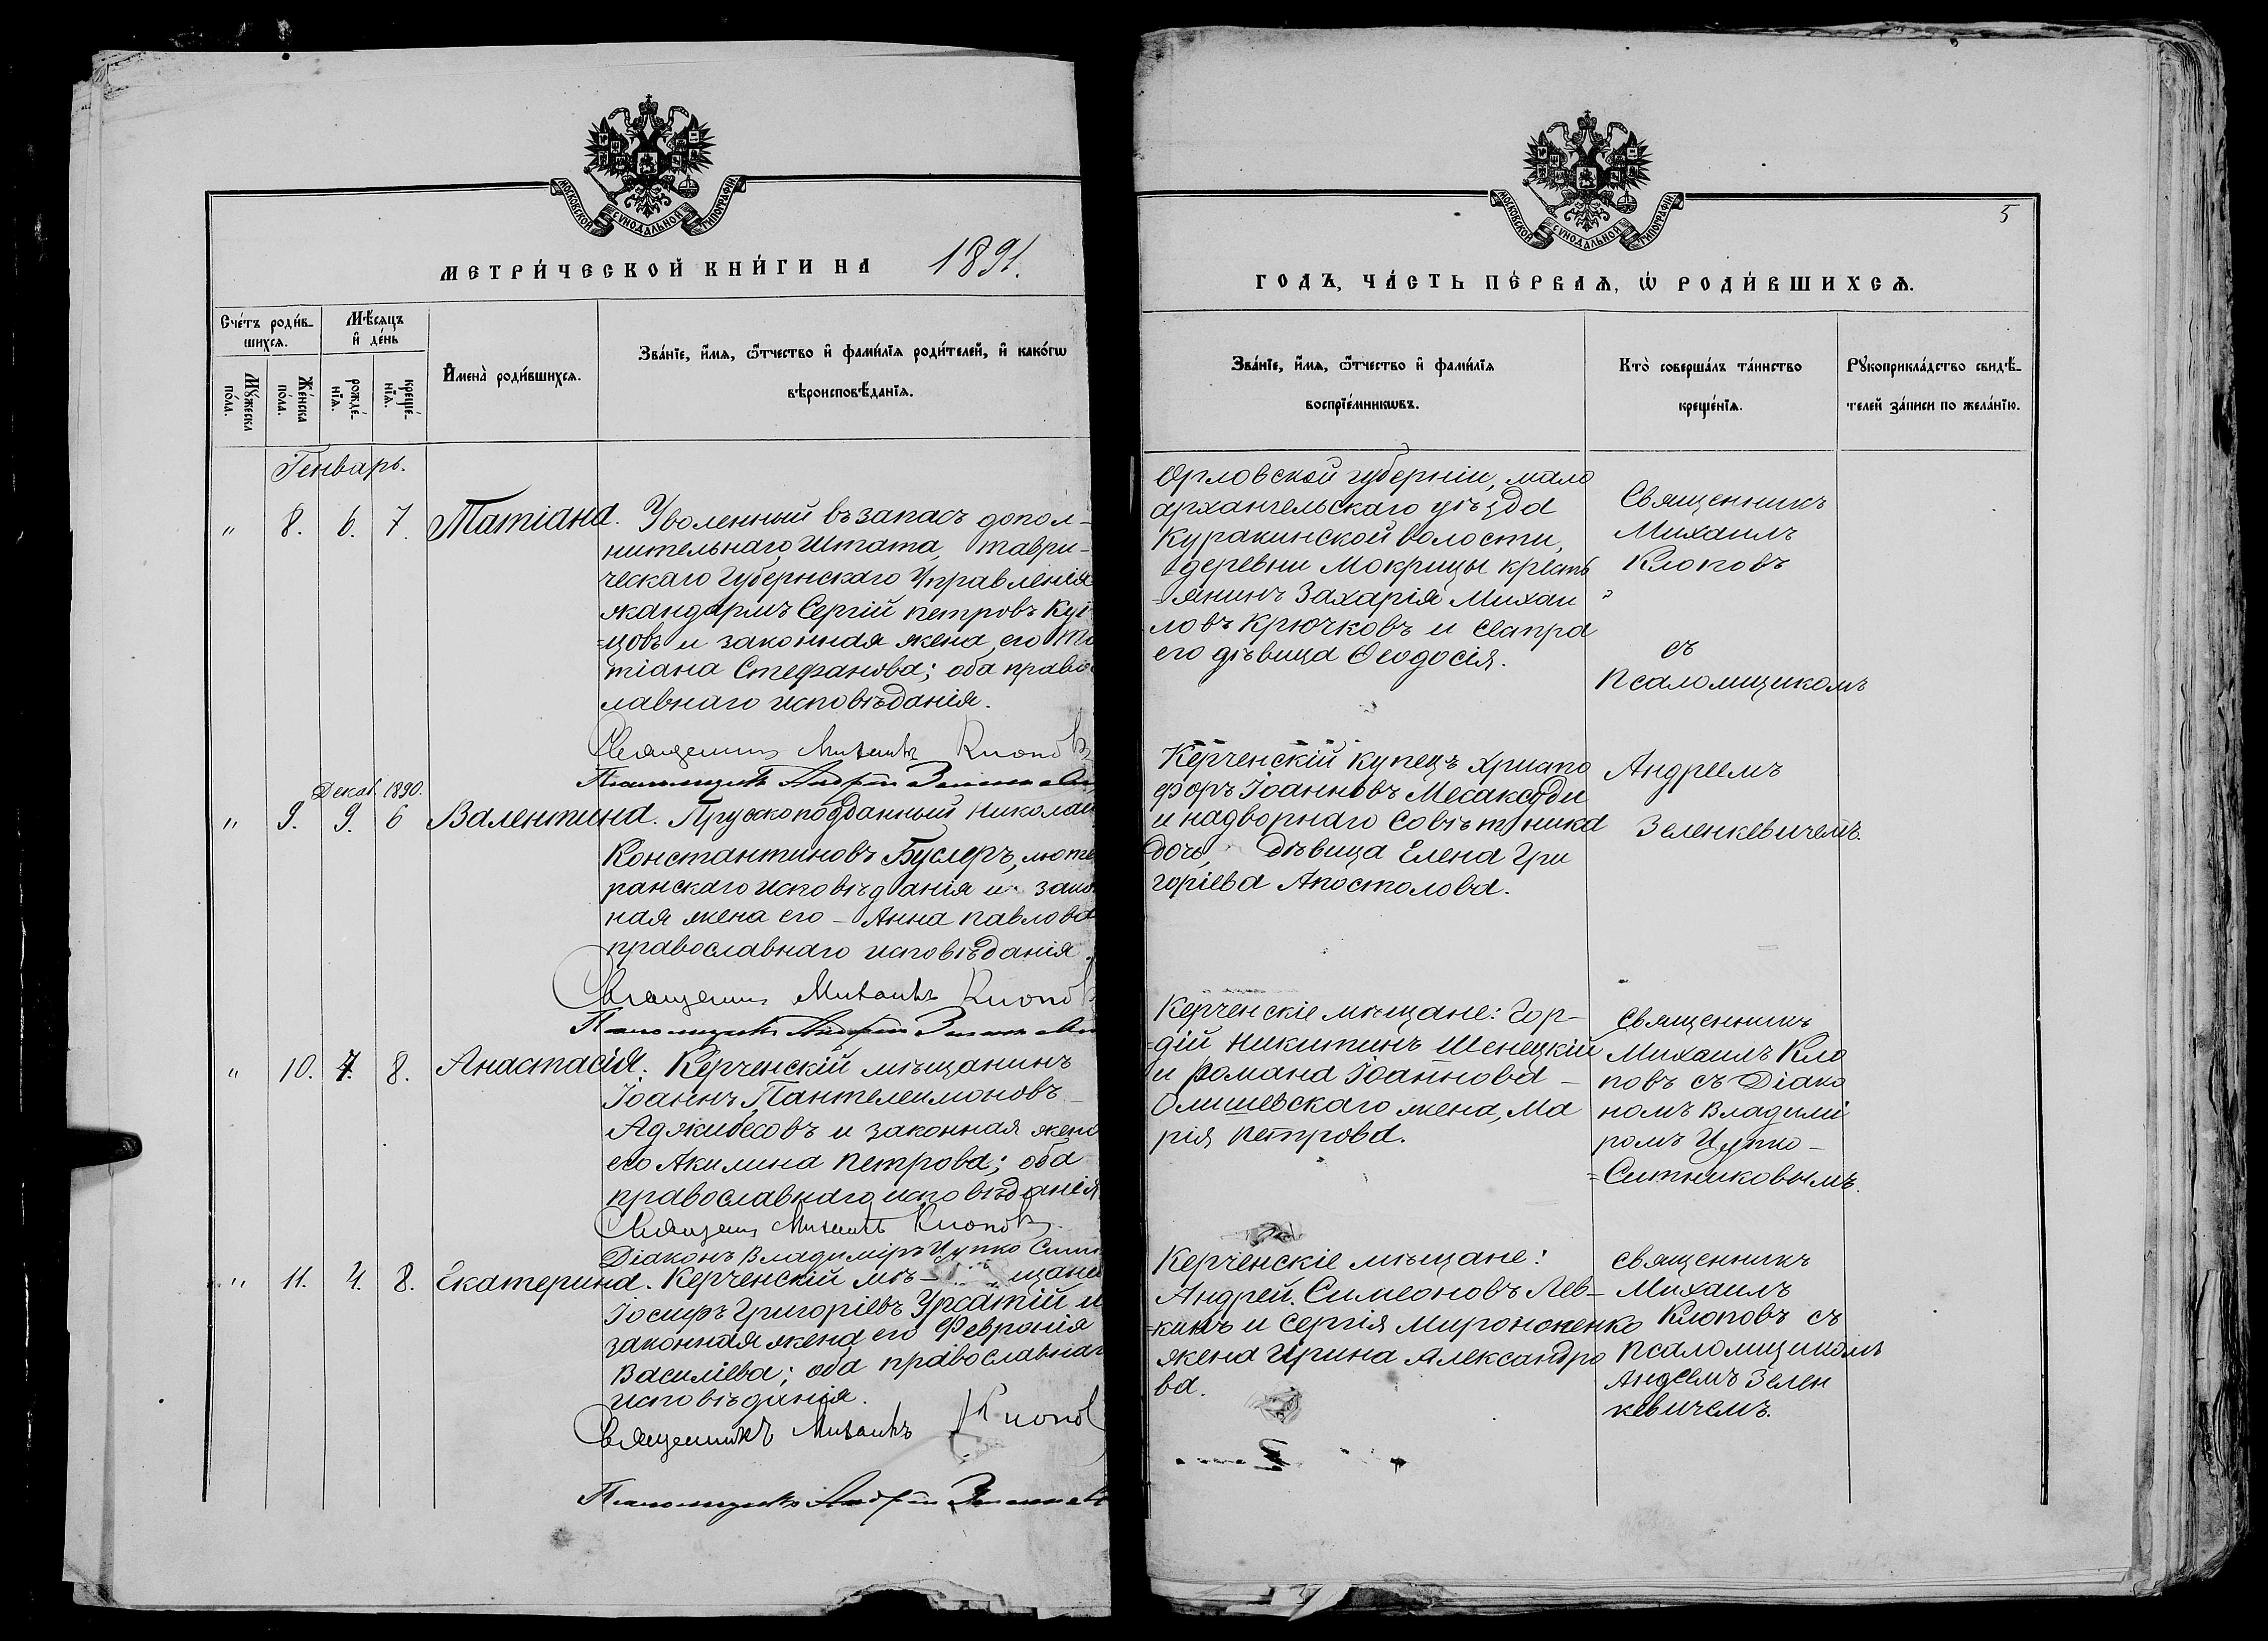 МОСКОВСКОЙ СѴНОДАЛЬНОЙ ТИПОГРАФІИ
МЕТРИ́ЧЕСКОЙ КНИ́ГИ НА 1891.
Сче́тъ роди́в-
шихсѧ.
Мѣ́сѧцъ
и҆ де́нь
Мꙋ́жеска
по́ла.
Же́нска
по́ла.
рожде́-
нїѧ.
креще́-
нїѧ.
И҆мена̀ роди́вшихсѧ.
Зва́нїе, и҆́мѧ, ѻ҆́тчество и҆ фами́лїѧ роди́телей, и҆ како́гѡ
вѣроисповѣ́данїѧ.
Генварь.
" 8. 6. 7. Татіана. Уволенный въ запасъ допол-
нительнаго Штата таври-
ческаго Губернскаго Управленія
жандармъ Сергій Петровъ
=цовъ и законная жена его
тіана Стефанова; оба право
славнаго исповѣданія.
Священникъ Михаилъ Клопов
Псаломщикъ Андрей
Декаб. 1890.
" 9. 9. 6 Валентина. Прусскоподданный Николай
Константиновъ Буслеръ, люте
ранскаго исповѣданія и закон
ная жена его - Анна Павлова
православнаго исповѣданія.
Священникъ Михаилъ Клопов
Псаломщикъ Андрей
" 10. 7. 8. Анастасія. Керченскій мѣщанинъ
Іоаннъ Пантелеимоновъ
Аджибесовъ и законная жена
его Акилина Петрова; оба
православнаго исповѣданія
Священникъ Михаилъ Клоповъ.
Діаконъ Владиміръ Цупко Ситн
" 11. 4. 8. Екатерина. Керченскій мѣ- щанин
Іосифъ Григоріевъ и
законная жена его Февронія
Василіева; оба православнаг
исповѣданія.
Священникъ Михаилъ Клопов
Псаломщикъ Андрей
МОСКОВСКОЙ СѴНОДАЛЬНОЙ ТИПОГРАФІИ
5
ГОДЪ, ЧА́СТЬ ПЕ́РВАѦ, Ѡ҆ РОДИ́ВШИХСѦ.
Зва́нїе, и҆́мѧ, ѻ҆́тчество и҆ фами́лїѧ
воспрїе́мникѡвъ.
Кто̀ соверша́лъ та́инство
креще́нїѧ.
Рꙋкоприкла́дство свидѣ́-
телей за́писи по жела́нїю.
Орловской губерніи, мало
архангельскаго уѣзда
Куракинской волости,
деревни Мокрицы кресть
=янинъ Захарія Михаи
ловъ Крючковъ и сестра
его дѣвица Ѳеодосія.
Священникъ
Михаилъ
Клоповъ
съ
Псаломщикомъ
Керченскій купецъ Христо
форъ Іоанновъ Месаксуди
и надворнаго Совѣтника
дочь, дѣвица Елена Гри
горіева Апостолова.
Андреемъ
Зеленкевичемъ.
Керченскіе мѣщане: Гор-
=дій Никитинъ Шенецкій
и Романа Іоаннова -
Олишевскаго жена, Ма
рія Петрова.
Священникъ
Михаилъ Кло
повъ съ Діако
номъ Владимі
ромъ Цупко -
=Ситниковымъ.
Керченскіе мѣщане:
Андрей Симеоновъ Лев-
=кинъ и Сергія Мирононенко
жена Ирина Александро
ва.
Священникъ
Михаилъ
Клоповъ съ
Псаломщикомъ
Андеемъ Зелен
кевичемъ.